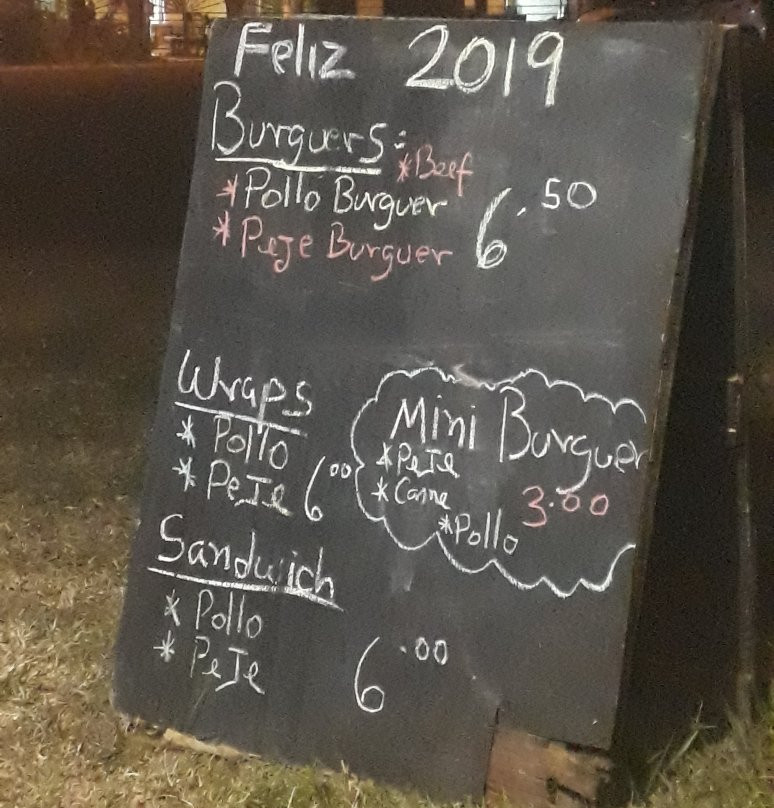 Feliz 2019
Burguers:
*Beef
*Pollo Burguer 6.50
*PeJe Burguer
Wraps
* Pollo
* PeJe 6.00
Mini Burguer
*PeJe
*Carne 3.00
*Pollo
Sandwich
* Pollo
* PeJe 6.00